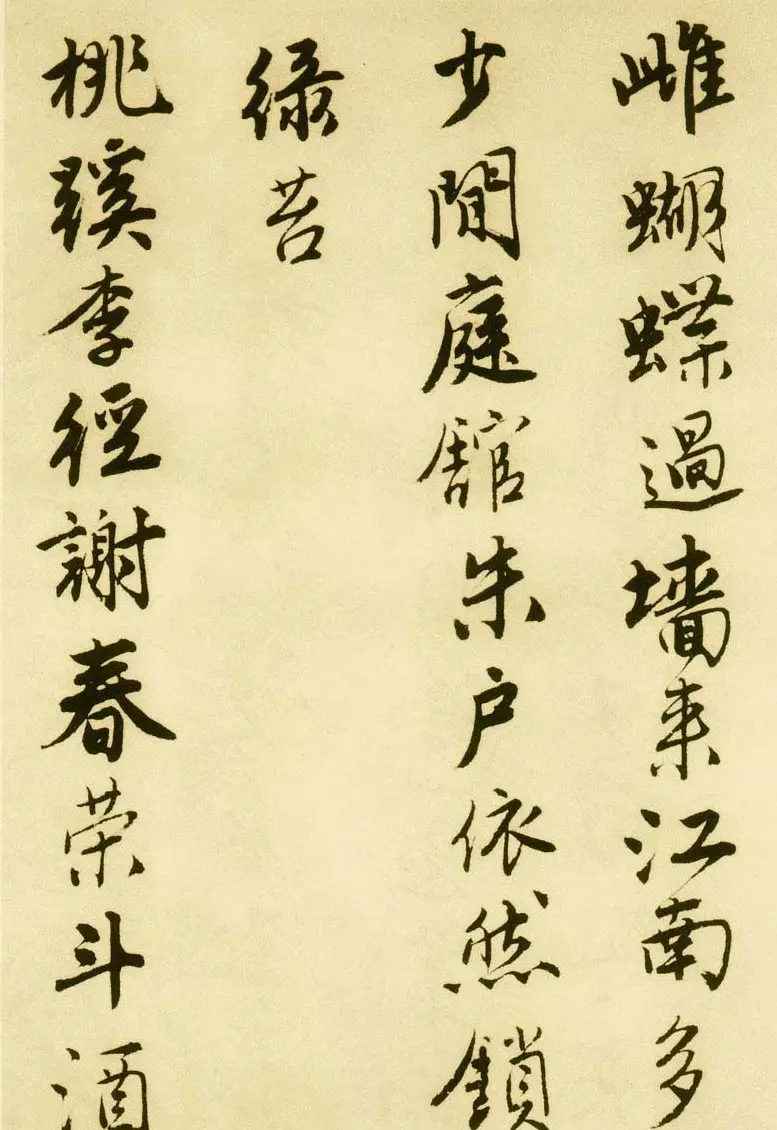 雌蝴蝶過墻来江南多
少閒庭舘朱户依然鎖
緑苔
桃蹊李徑謝春荣斗酒